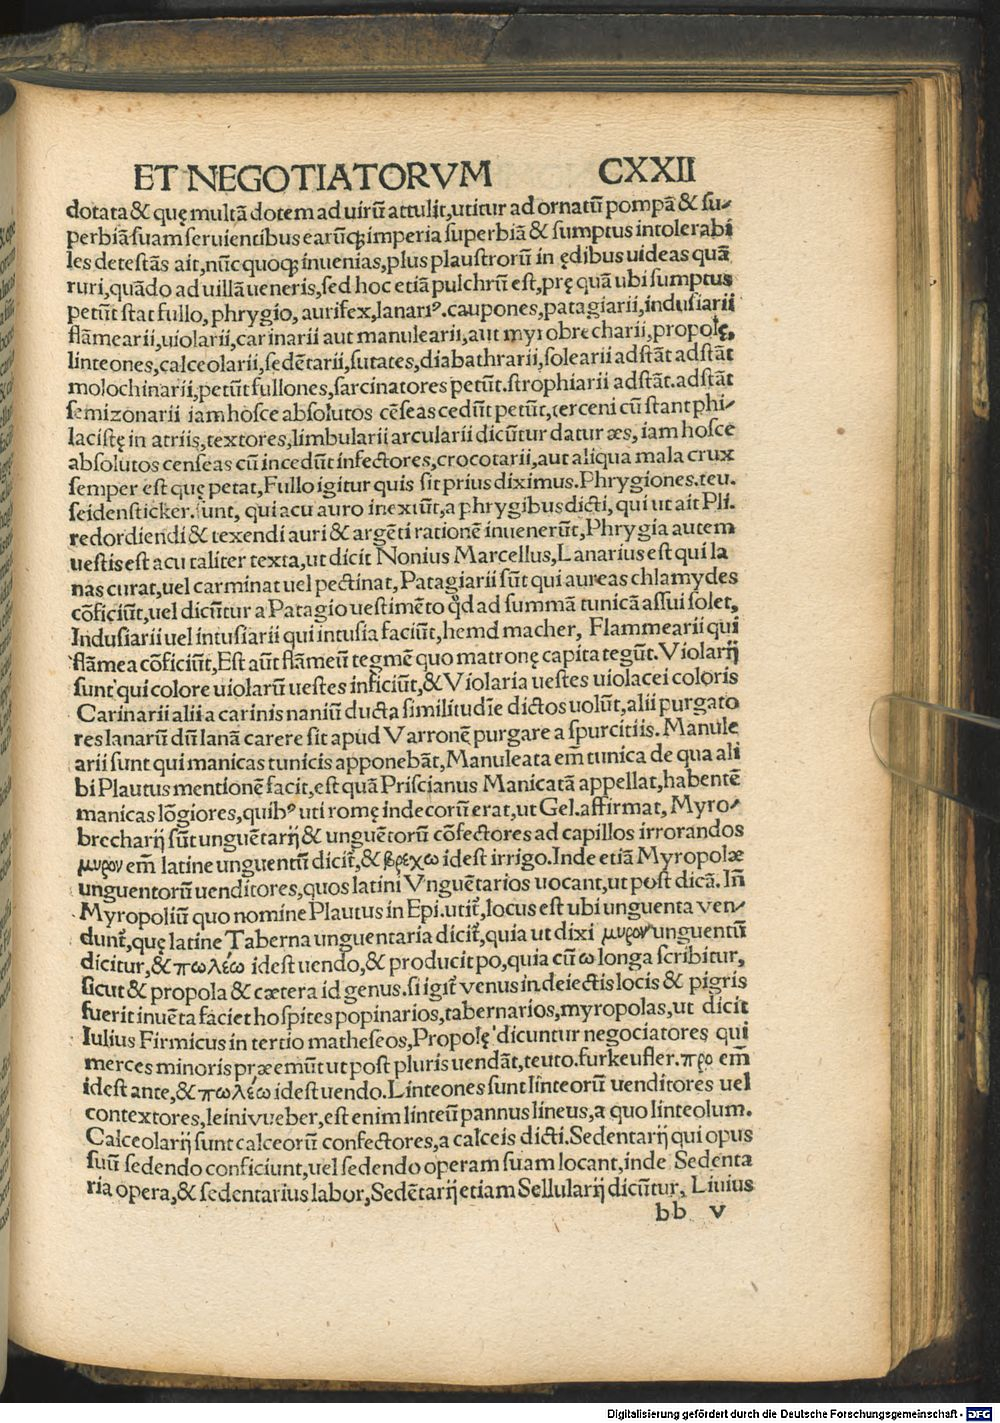 ET NEGOTIATORVM CXXII
dotata & quę multā dotem ad uirū attulit, utitur ad ornatū pompā & su-
perbiā suam seruientibus earūqʒ imperia superbiā & sumptus intolerabi
les detestās ait, nūc quoqʒ inuenias, plus plaustrorū in ędibus uideas quā
ruri, quādo ad uillā ueneris, sed hoc etiā pulchrū est, prę quā ubi sumptus
petūt stat fullo, phrygio, aurifex, lanariꝰ. caupones, patagiarii, indusiarii
flāmearii, uiolarii, carinarii aut manulearii, aut myrobrecharii, propolę,
linteones, calceolarii, sedētarii, sutates, diabathrarii, solearii adstāt adstāt
molochinarii, petūt fullones, sarcinatores petūt. strophiarii adstāt. adstāt
semizonarii iam hosce absolutos cēseas cedūt petūt, terceni cū stant phi-
lacistę in atriis, textores, limbularii arcularii dicūtur datur æs, iam hosce
absolutos censeas cū incedūt infectores, crocotarii, aut aliqua mala crux
semper est quę petat, Fullo igitur quis sit prius diximus. Phrygiones. teu.
seidensticker. sunt, qui acu auro inexiūt, a phrygibus dicti, qui ut ait Pli.
redordiendi & texendi auri & argēti rationē inuenerūt, Phrygia autem
uestis est acu taliter texta, ut dicit Nonius Marcellus, Lanarius est qui la
nas curat, uel carminat uel pectinat, Patagiarii sūt qui aureas chlamydes
cōficiūt, uel dicūtur a Patagio uestimēto qd̄ ad summā tunicā assui solet,
Indusiarii uel intusiarii qui intusia faciūt, hemd macher, Flammearii qui
flāmea cōficiūt, Est aūt flāmeū tegmē quo matronę capita tegūt. Violarij
sunt qui colore uiolarū uestes inficiūt, & Violaria uestes uiolacei coloris
Carinarii alii a carinis naniū ducta similitudīe dictos uolūt, alii purgato
res lanarū dū lanā carere sit apud Varronē purgare a spurcitiis. Manule
arii sunt qui manicas tunicis apponebāt, Manuleata em̄ tunica de qua ali
bi Plautus mentionē facit, est quā Priscianus Manicatā appellat, habentē
manicas lōgiores, quibꝰ uti romę indecorū erat, ut Gel. affirmat, Myro-
brecharij sūt unguētarij & unguētorū cōfectores ad capillos irrorandos
μυρον em̄ latine unguentū dicit̄, & βρεχω idest irrigo. Inde etiā Myropolæ
unguentorū uenditores, quos latini Vnguētarios uocant, ut post dicā. In̄
Myropoliū quo nomine Plautus in Epi. utit̄, locus est ubi unguenta ven-
dunt̄, quę latine Taberna unguentaria dicit̄, quia ut dixi μυρον unguentū
dicitur, & πωλέω idest uendo, & producit po, quia cū ω longa scribitur,
sicut & propola & cætera id genus. si igit̄ venus in deiectis locis & pigris
fuerit inuēta faciet hospites popinarios, tabernarios, myropolas, ut dicit
Iulius Firmicus in tertio matheseos, Propolę dicuntur negociatores qui
merces minoris præemūt ut post pluris uendāt, teuto. furkeufler. προ em̄
idest ante, & πωλέω idest uendo. Linteones sunt linteorū uenditores uel
contextores, leinivveber, est enim linteū pannus lineus, a quo linteolum.
Calceolarij sunt calceorū confectores, a calceis dicti. Sedentarij qui opus
suū sedendo conficiunt, uel sedendo operam suam locant, inde Sedenta
ria opera, & sedentarius labor, Sedētarij etiam Sellularij dicūtur, Liuius
bb v
Digitalisierung gefördert durch die Deutsche Forschungsgemeinschaft - DFG